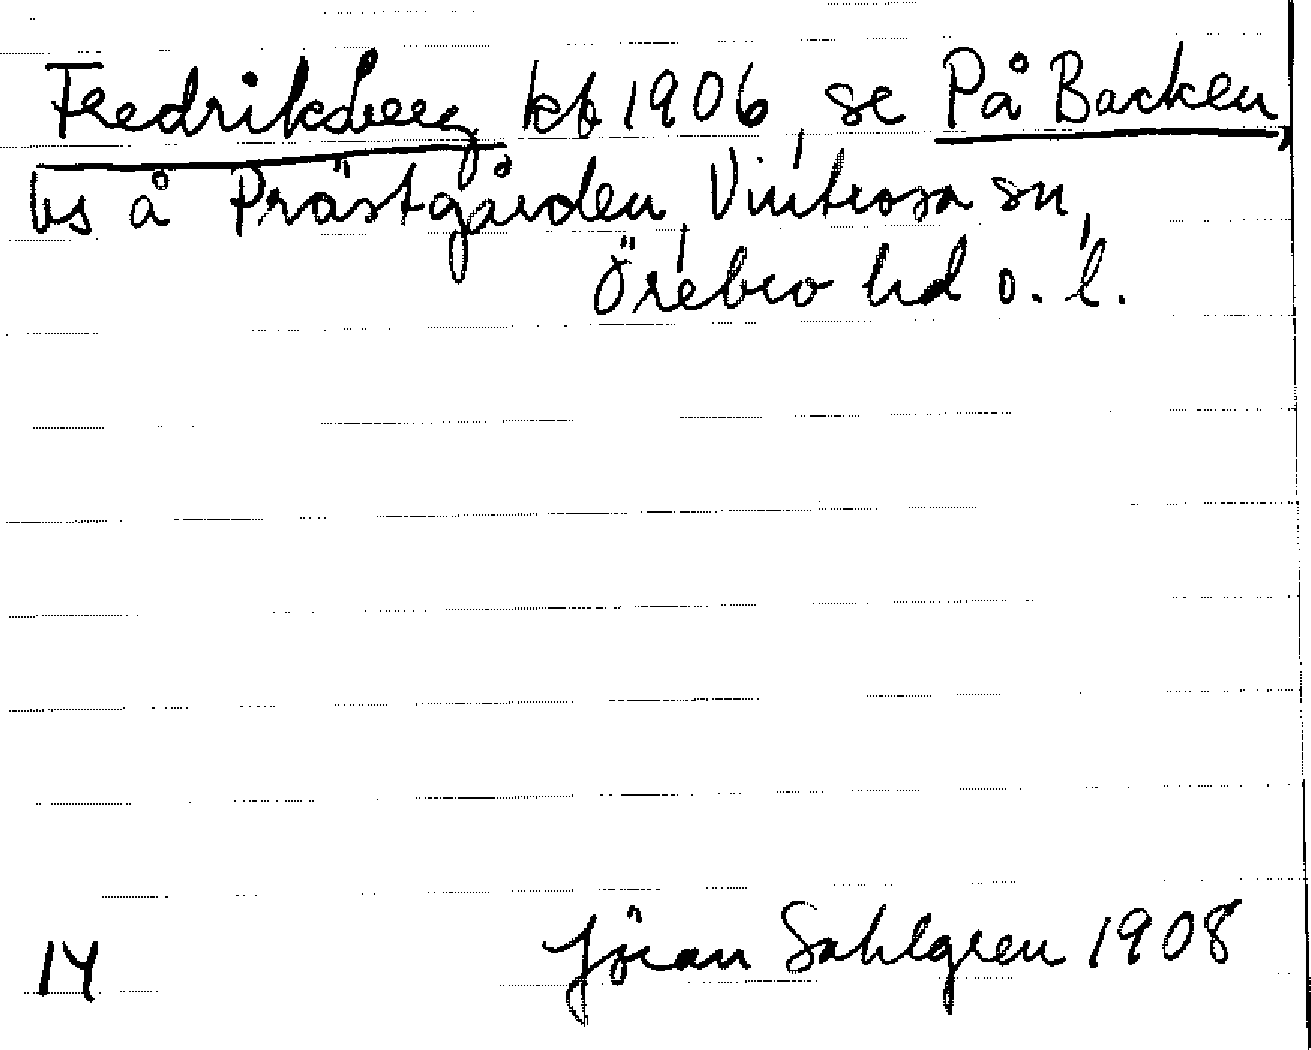 Fredriksberg kb 1906, se På Backen,
bs å Prästgården, Vintrosa sn,
Örebro hd o. l.
14 Jöran Sahlgren 1908